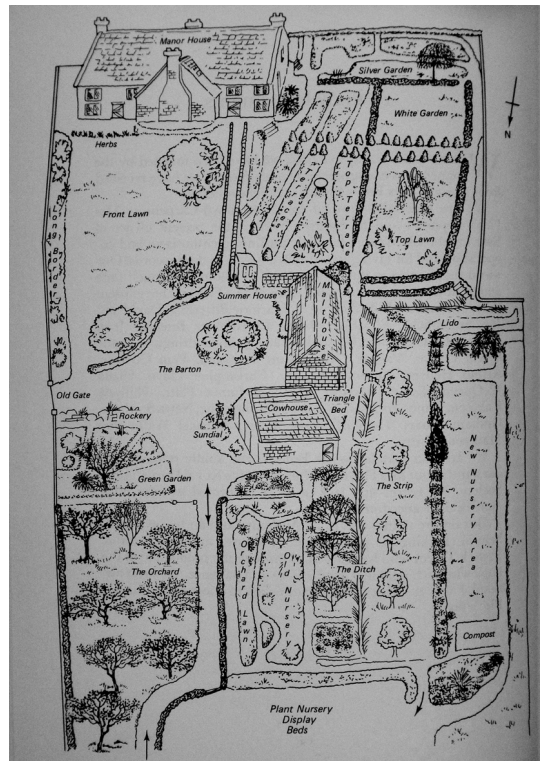 Manor House
Silver Garden
White Garden
N
Herbs
Terraces
Top Terrace
Front Lawn
Long Border
Top Lawn
Summer House
Malthouse
Lido
The Barton
Old Gate
Rockery
Cowhouse
Triangle
Bed
Sundial
Green Garden
The Strip
New Nursery Area
The Orchard
Orchard Lawn
Old Nursery
The Ditch
Compost
Plant Nursery
Display
Beds